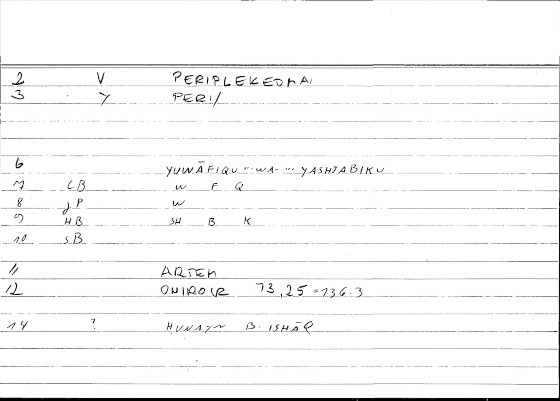 2 V PERIPLEKEOMAI
3 Y PERI/
6 YUWĀFIQU ... WA- ... YASHTABIKU
7 CB W F Q
8 JP W
9 HB SH B K
10 SB
11 ARTEM
12 ONIROCR 13,25 = 136.3
14 ? HUNAYN B. ISHĀQ